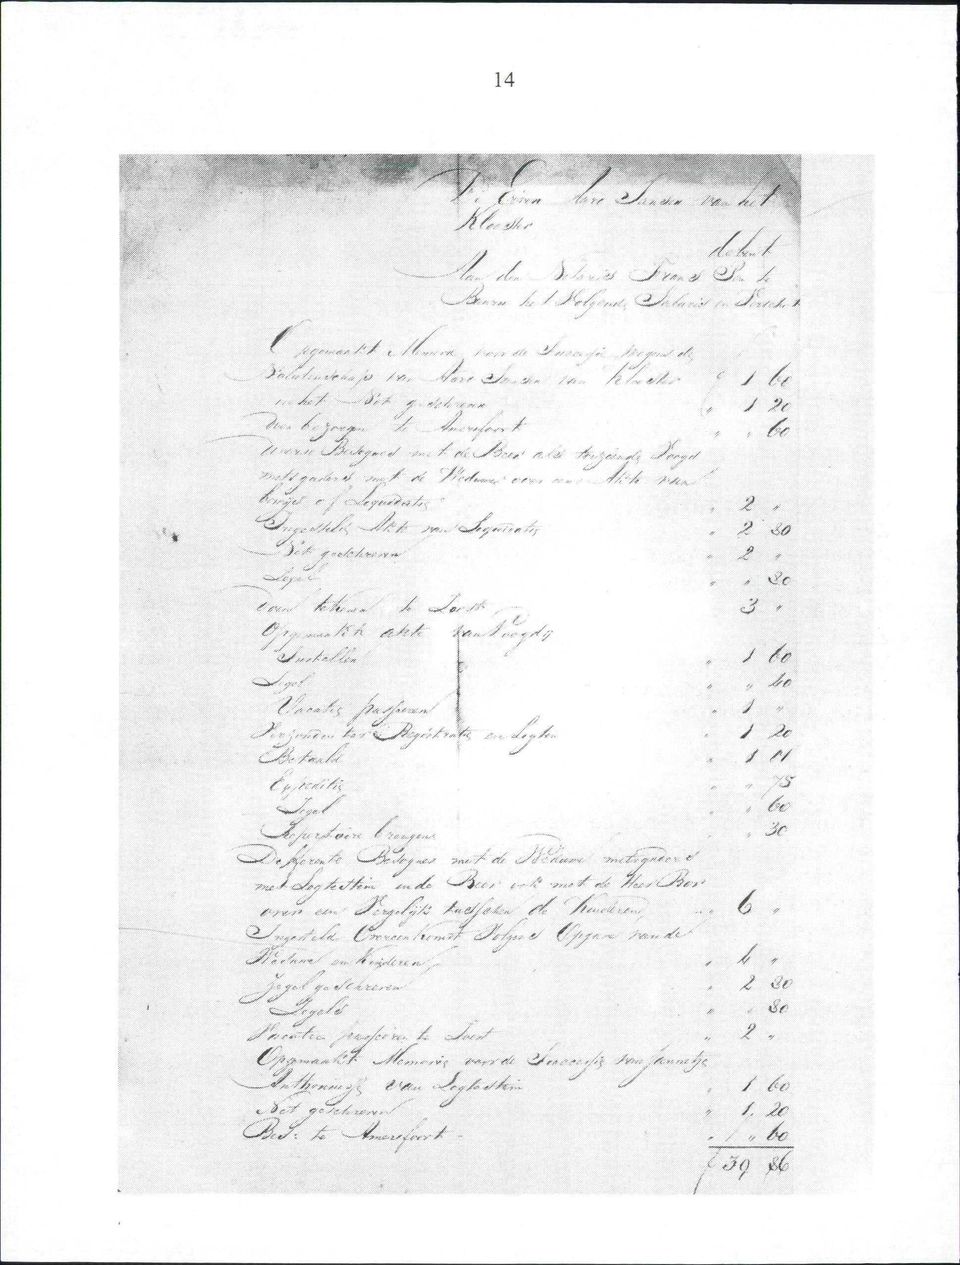 14
De Erven Jansen van het
Klooster
debent
Aan den Notaris Frans Pen te
Baarn het Volgende Salaris en Verschot
Opgemaakt Memorie voor de Successie wegens de
Nalatenschap van Jansen van Klooster f 1 60
in het Net geschreven " 1 20
Van bezorgen te Amersfoort " " 60
met de Beer als toeziende Voogd
mitsgaders met de Weduwe over eene Akte van
bewijs of Liquidatie " 2 "
Ingesteld Akte van Liquidatie " 2 80
Net geschreven " 2 "
Zegel " " 80
te Soest 3 "
Opgemaakte akte van Voogdij
Instellen " 1 60
Zegel " " 40
Vacatie passeren " 1 "
Verzonden ter Registratie en " 1 20
Betaald " 1
Expeditie " " 75
Zegel " " 60
Repertoire brengen " " 30
Differente Besognes met de Weduwe mitsgaders
met Logtestein en de Beer ook met de Heer Bos
over een Vergelijk tusschen de Kinderen " 6 "
Ingesteld Overeenkomst Volgens Opgave van de
Weduwe en Kinderen " 4 "
Zegel geschreven " 2 80
Zegels " " 80
Vacatie passeren te Soest " 2 "
Opgemaakt Memorie voor de Successie van Jannetje
Anthonisse van Logtestein " 1 60
Net geschreven " 1 20
Bes: te Amersfoort - " " 60
f 39 86